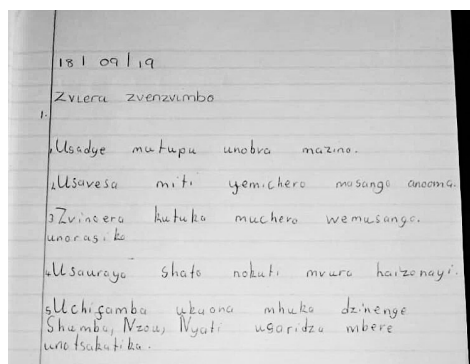 18 | 09 | 19
Zviera zvenzvimbo
1.
1. Usadye mutupu unobva mazino.
2. Usavesa miti yemichero masango anooma.
3 Zvinoera kutuka muchero wemusango.
unorasika
4. Usauraya shato nokuti mvura haizonayi.
5 Uchifamba ukaona mhuka dzinenge
Shumba, Nzou, Nyati usaridza mbere
unotsakatika.